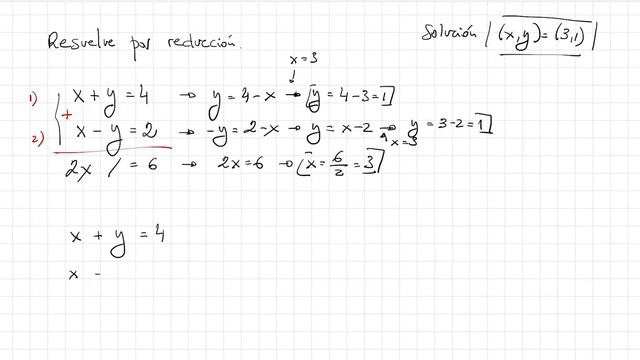 Resuelve por reducción.
Solución | (x,y) = (3,1) |
x = 3
↓
1) x + y = 4 → y = 4 - x → [y = 4 - 3 = 1]
+
2) x - y = 2 → -y = 2 - x → y = x - 2 → y = 3 - 2 = 1]
x = 3
2x / = 6 → 2x = 6 → [x = 6/2 = 3]
x + y = 4
x -